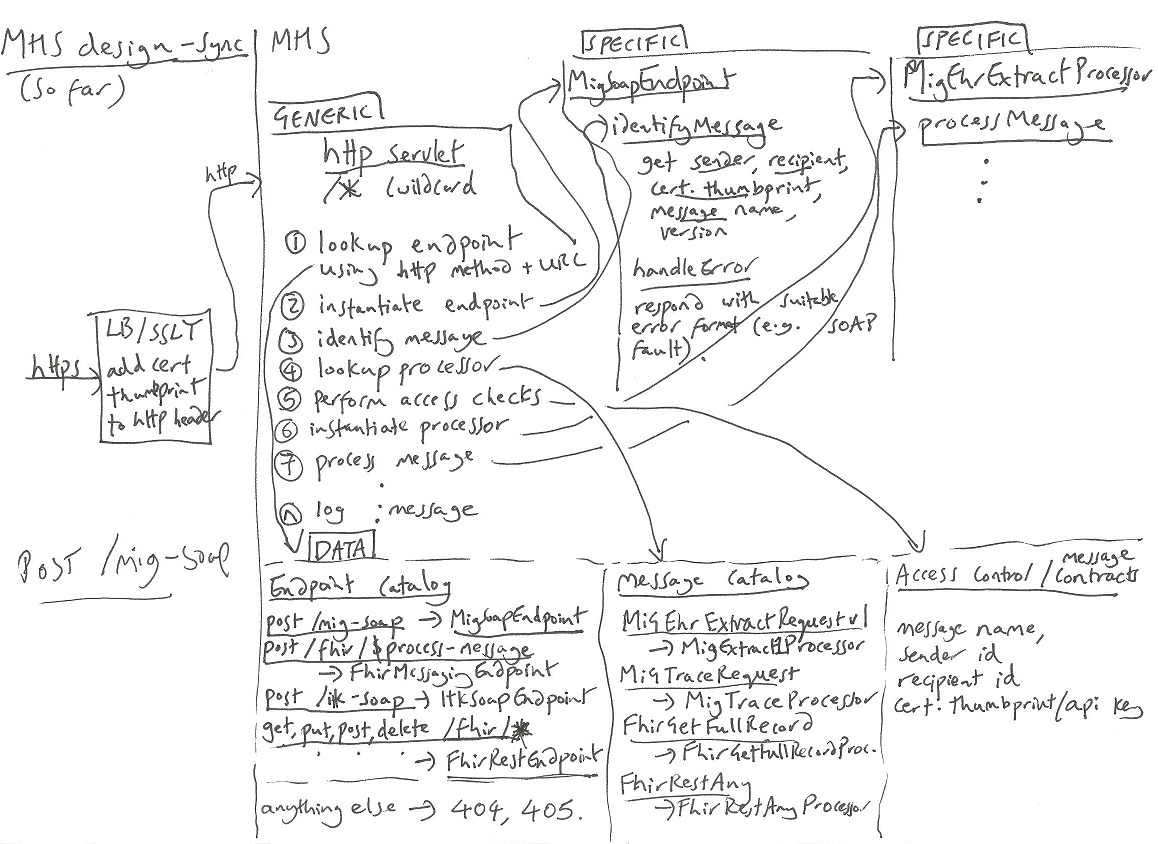 MHS design - sync
(so far)
MHS
GENERIC
http servlet
/* wildcard
① lookup endpoint
using http method + URL
② instantiate endpoint
③ identify message
④ lookup processor
⑤ perform access checks
⑥ instantiate processor
⑦ process message
:
ⓝ log : message
http
https
LB/SSLT
add cert
thumbprint
to http header
POST /mig-soap
SPECIFIC
MigSoapEndpoint
identifyMessage
get sender, recipient,
cert. thumbprint,
message name,
version
handleError
respond with suitable
error format (e.g. SOAP
fault).
SPECIFIC
MigEhrExtractProcessor
processMessage
DATA
Endpoint Catalog
post /mig-soap → MigSoapEndpoint
post /fhir/$process-message
→ FhirMessagingEndpoint
post /itk-soap → ItkSoapEndpoint
get, put, post, delete /fhir/*
→ FhirRestEndpoint
anything else → 404, 405.
Message Catalog
MigEhrExtractRequestv1
→ MigExtract1Processor
MigTraceRequest
→ MigTraceProcessor
FhirGetFullRecord
→ FhirGetFullRecordProc.
FhirRestAny
→ FhirRestAnyProcessor
Access Control / message Contracts
message name,
sender id
recipient id
cert. thumbprint/api key